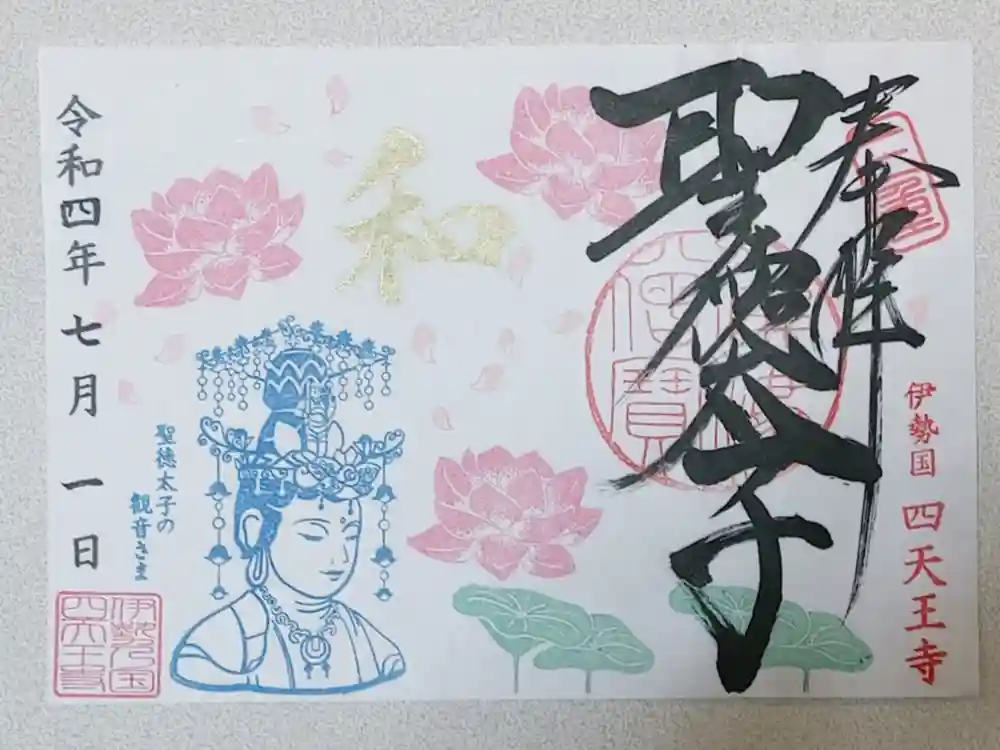 奉拝
聖徳太子
伊勢国 四天王寺
和
聖徳太子の
観音さま
令和四年七月一日
伊勢乃国
四天王寺